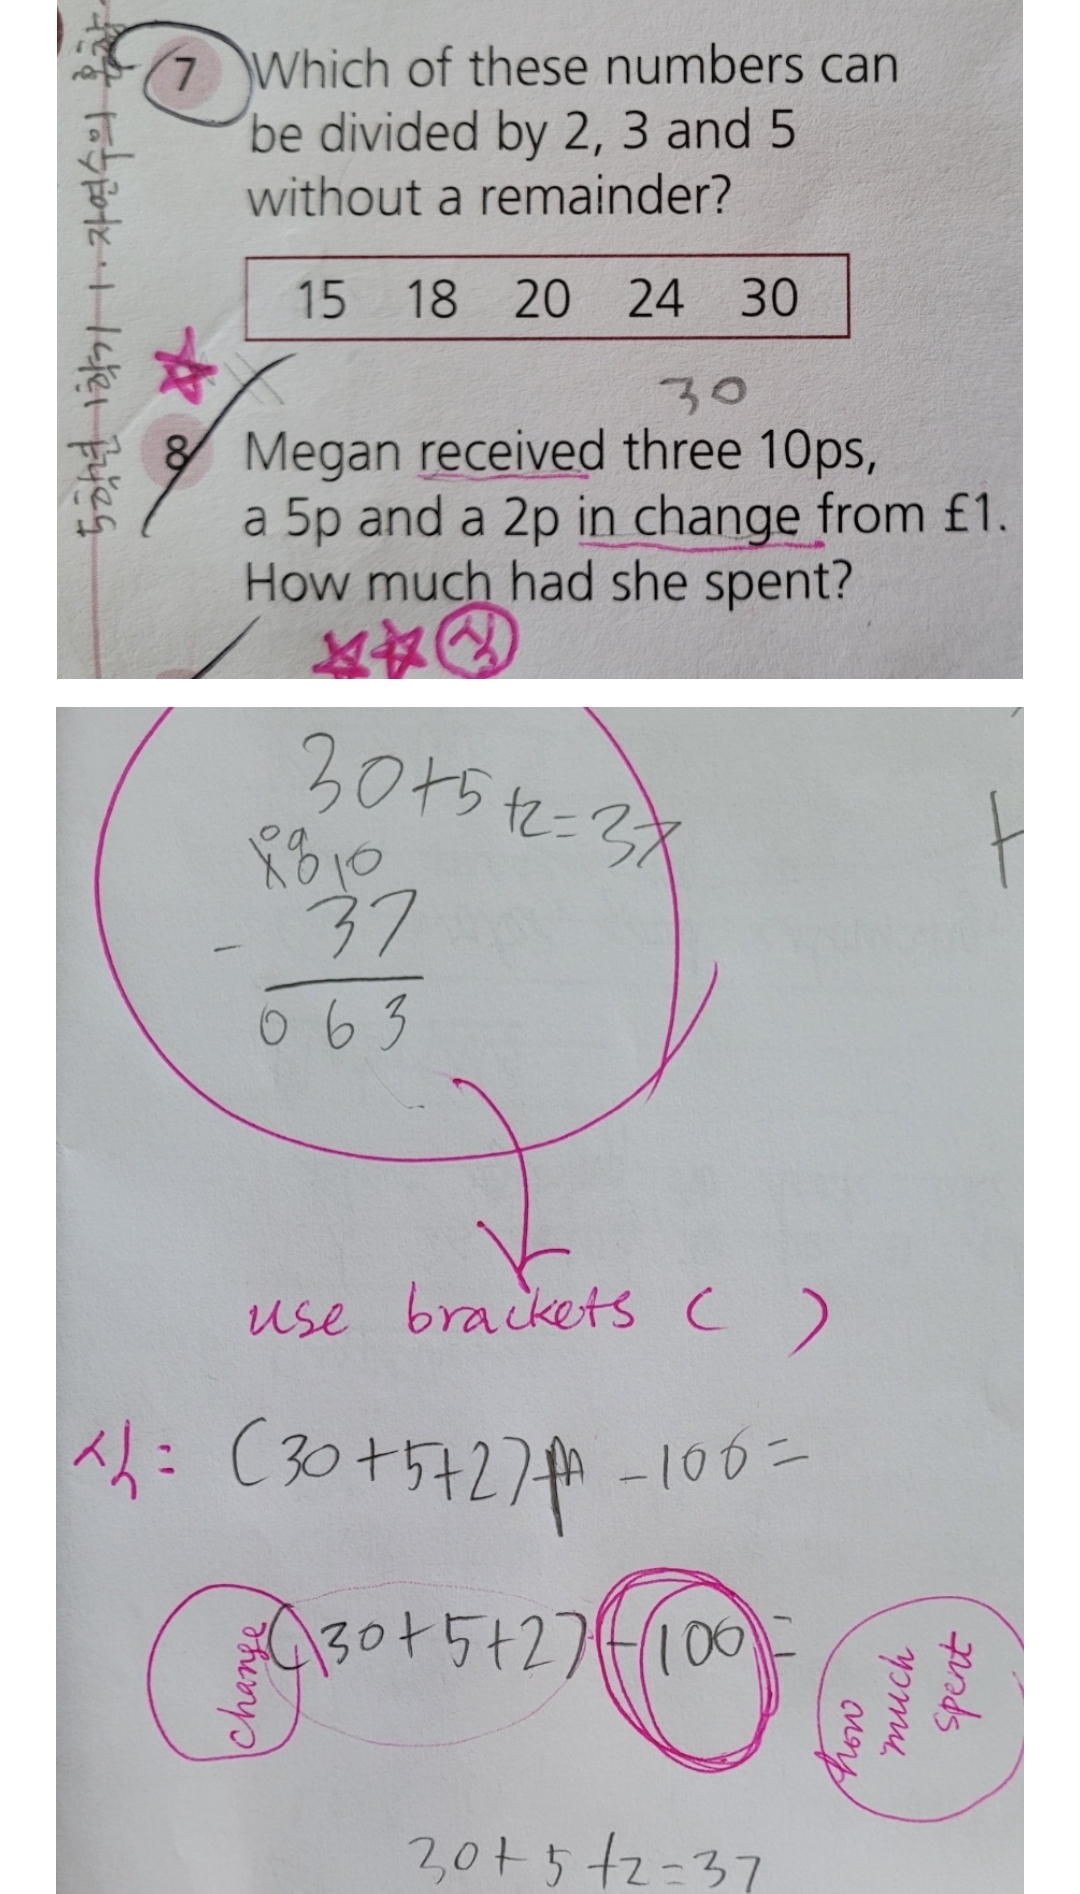 7 Which of these numbers can
be divided by 2, 3 and 5
without a remainder?
15 18 20 24 30
30
8 Megan received three 10ps,
a 5p and a 2p in change from £1.
How much had she spent?
식
30+5+2=37
0 9
1 0 10
- 37
0 6 3
use brackets ( )
식: (30+5+2) -100=
change (30+5+2)-100= how much spent
30+5+2=37